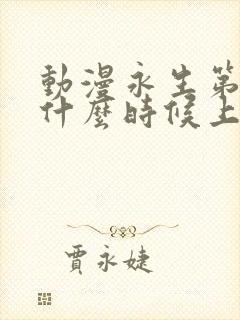 動漫永生第
什麼時候上
賈永婕